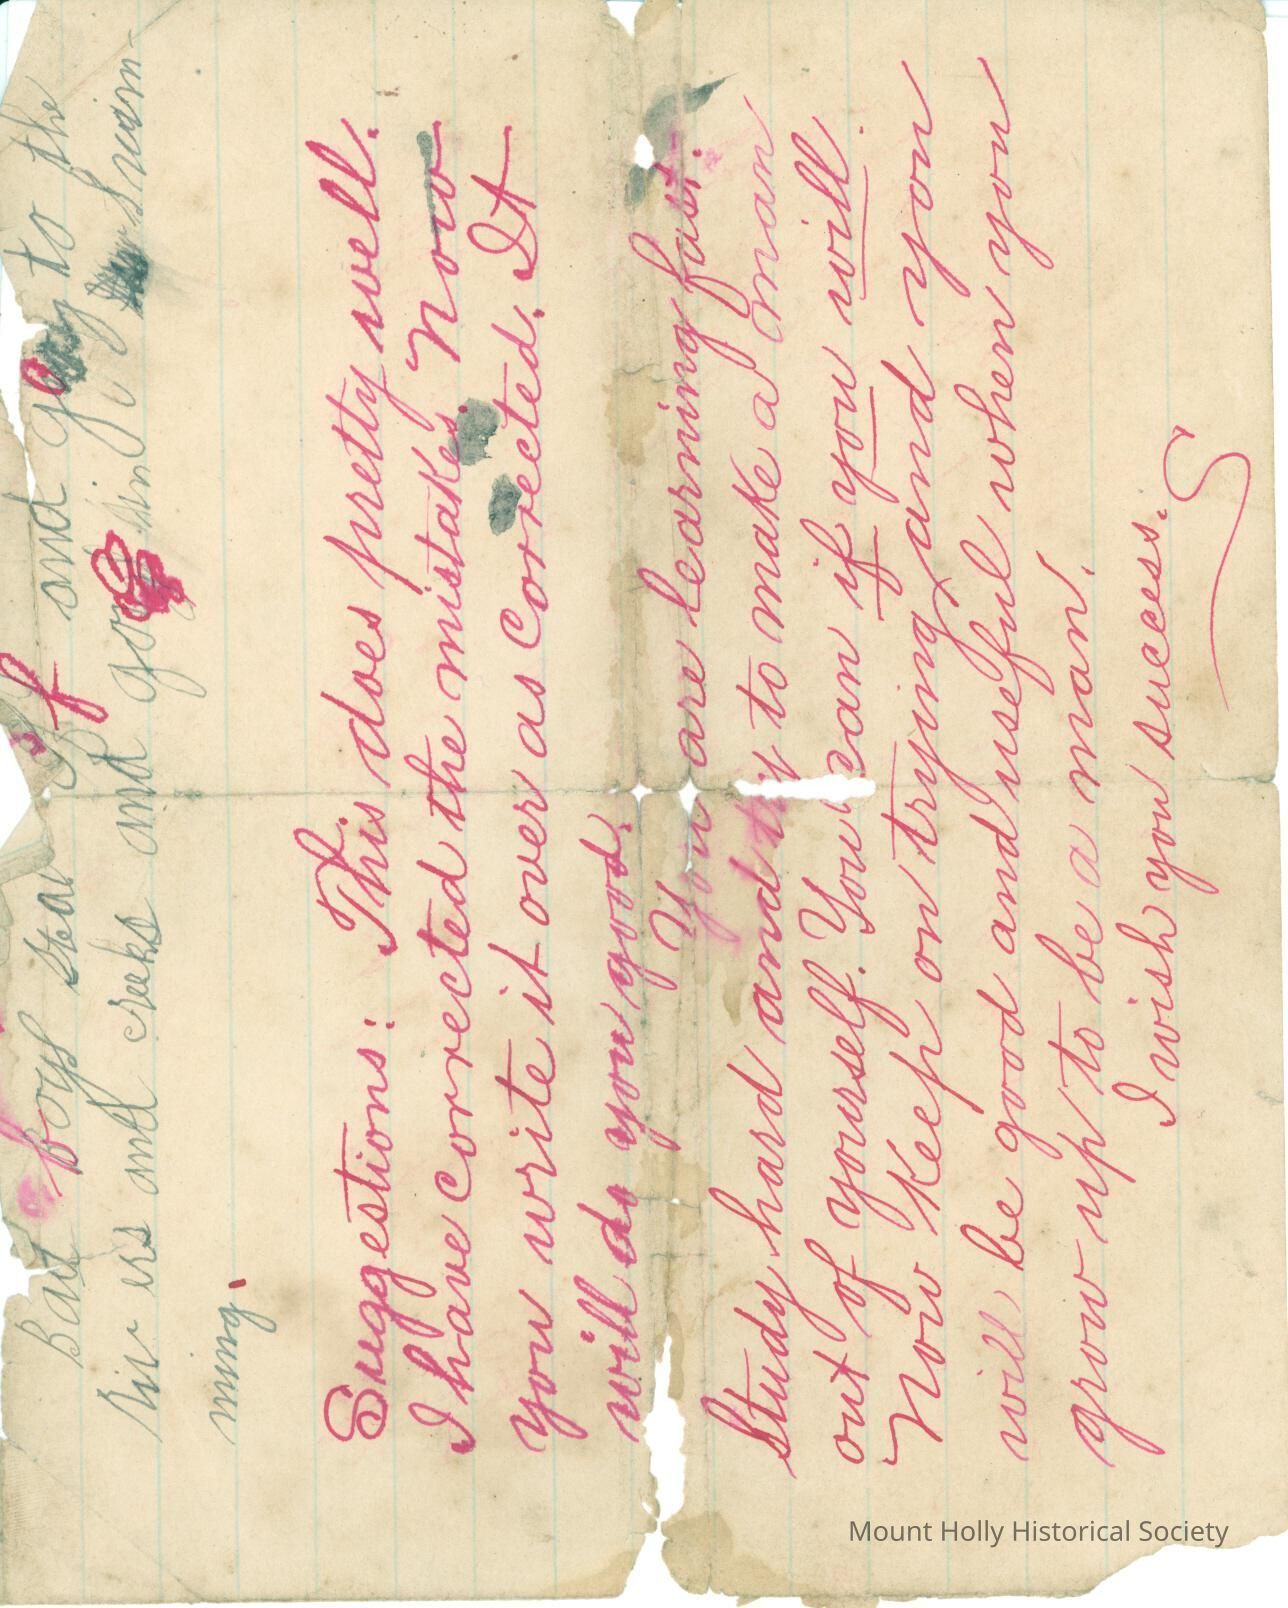 Bad boys steal off and go to the
riv ers and creeks and go in swim-
ming.
Suggestions: This does pretty well.
I have corrected the mistakes. Now
you write it over as corrected. It
will do you good.
You are learning fast.
Study hard and try to make a man
out of yourself. You can if you will.
Now keep on trying and you
will be good and useful when you
grow up to be a man.
I wish you success.
Mount Holly Historical Society